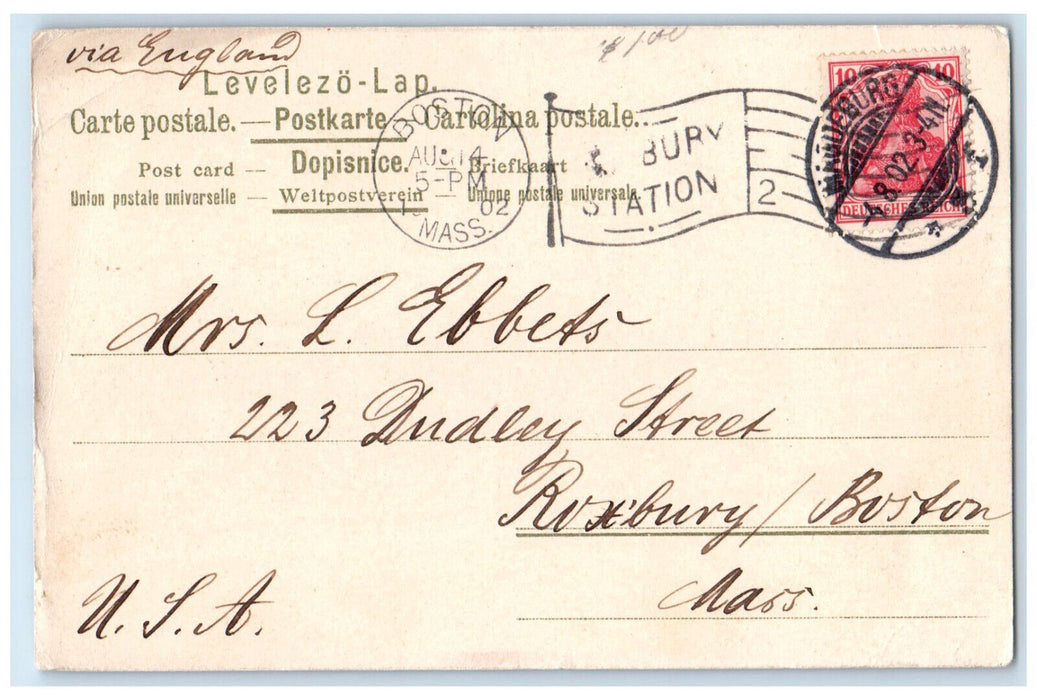 via England
Levelező-Lap.
Carte postale. — Postkarte — Cartolina postale.
Post card — Dopisnice. — Briefkaart
Union postale universelle — Weltpostverein — Unione postale universale.
BOSTON
AUG 14
5-PM
02
MASS.
BURY
STATION
2
10 10
DEUTSCHES REICH
8.02.3-4N
Mrs. L. Ebbets
223 Dudley Street
Roxbury / Boston
Mass.
U. S. A.